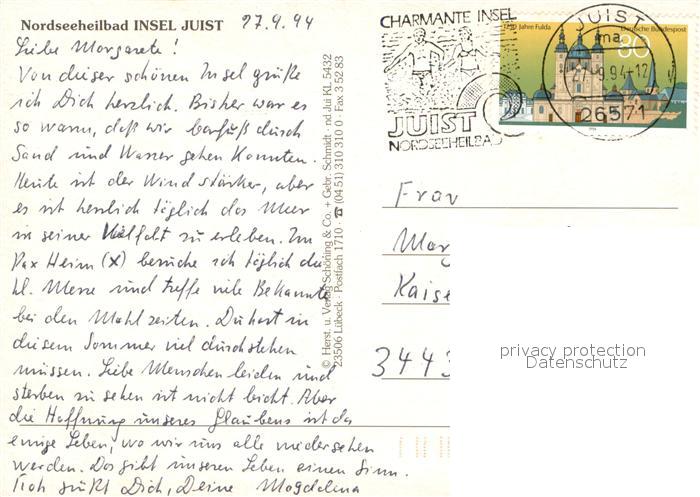 Nordseeheilbad INSEL JUIST 27.9.94
Liebe Margarete!
Von dieser schönen Insel grüße
ich Dich herzlich. Bisher war es
so warm, daß wir barfuß durch
Sand und Wasser gehen konnten.
Heute ist der Wind stärker, aber
es ist herrlich täglich das Meer
in seiner Vielfalt zu erleben. Im
Pax Heim (X) besuche ich täglich die
hl. Messe und treffe viele Bekannte
bei den Mahlzeiten. Du hast in
diesem Sommer viel durchstehen
müssen. Liebe Menschen leiden und
sterben zu sehen ist nicht leicht. Aber
die Hoffnung unseres Glaubens ist das
ewige Leben, wo wir uns alle wiedersehen
werden. Das gibt unserem Leben einen Sinn.
Tich grüßt Dich, Deine Magdalena
© Herst. u. Verlag Schöning & Co. + Gebr. Schmidt · nd Jui KL 5432
23506 Lübeck · Postfach 1710 · ☎ (04 51) 310 310 0 · Fax 3 52 83
CHARMANTE INSEL
JUIST
NORDSEEHEILBAD
1250 Jahre Fulda
Deutsche Bundespost
80
JUIST
ma
27.-9.94-12
26571
Frau
Mar
Kaise
3443
privacy protection